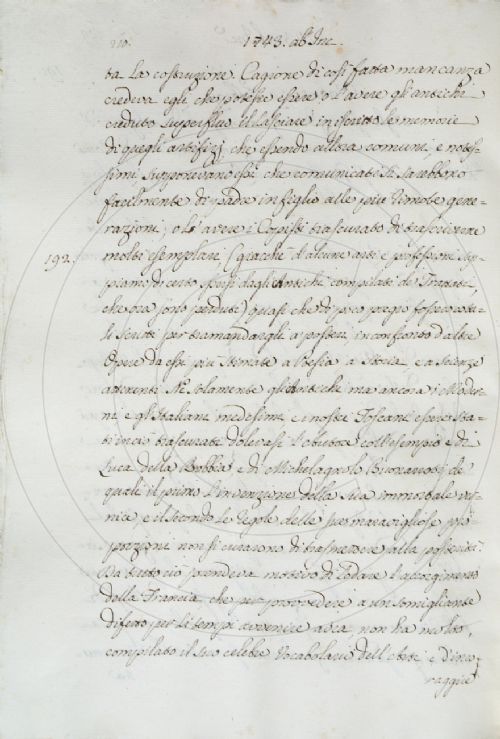 210.
1743. ab Inc.
ta la costruzione. Cagione di così fatta mancanza
credeva egli che potesse essere o l'avere gli antichi
creduto superfluo il lasciare in iscritto le memorie
di quegli artifizj, che essendo allora comuni, e notis-
simi, supponevano essi che comunicati si sarebbero
facilmente di padre in figlio alle più rimote gene-
razioni; o l'avere i Copisti trascurato di trascrivere
molti esemplari (giacchè d'alcune arti e professioni sap-
192.
piamo di certo essersi dagli Antichi compilati de' Trattati,
che ora sono perduti) quasi che di poco pregio fossero ta-
li scritti per tramandargli a' posteri in confronto d'altre
Opere da essi più stimate a Poesia a Storia, e a Scienze
attenenti. Nè solamente gli Antichi ma ancora i Moder-
ni e gl'Italiani medesimi, e i nostri Toscani essere sta-
ti in ciò trascurati dolevasi coll'esempio e di
Luca della Robbia e di Michelagnolo Buonarroti de'
quali il primo l'invenzione della sua immortale ver-
nice, e il secondo le regole delle sue maravigliose pro-
porzioni non si curarono di trasmettere alla posterità.
Da tutto ciò prendeva motivo di lodare l'accorgimento
della Francia, che per provvedere a un somigliante
difetto per li tempi avvenire ha non ha molto,
compilato il suo celebre Vocabolario dell'Arti, e d'inco-
raggire